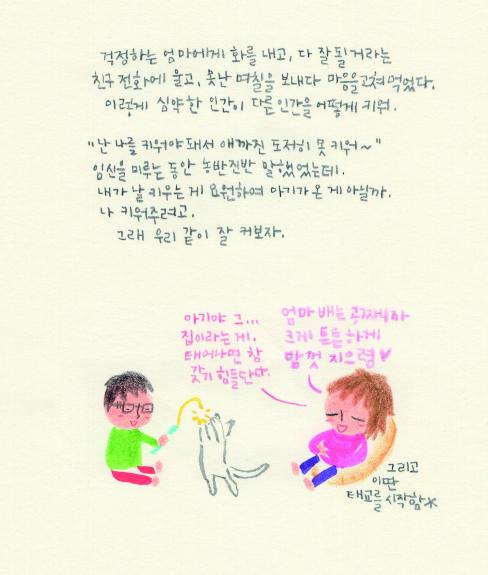 걱정하는 엄마에게 화를 내고, 다 잘 될 거라는
친구 전화에 울고, 못난 며칠을 보내다 마음을 고쳐먹었다.
이렇게 심약한 인간이 다른 인간을 어떻게 키워.
"난 나를 키워야 돼서 애까진 도저히 못 키워~"
임신을 미루는 동안 농반진반 말했었는데.
내가 날 키우는 게 요원하여 아기가 온 게 아닐까.
나 키워주려고.
그래 우리 같이 잘 커보자.
아기야 그...
집이라는 게.
태어나면 참
갖기 힘들단다.
엄마 배는 공짜니까
크게 튼튼하게
맘껏 지으렴♥
그리고
이딴
태교를 시작함*